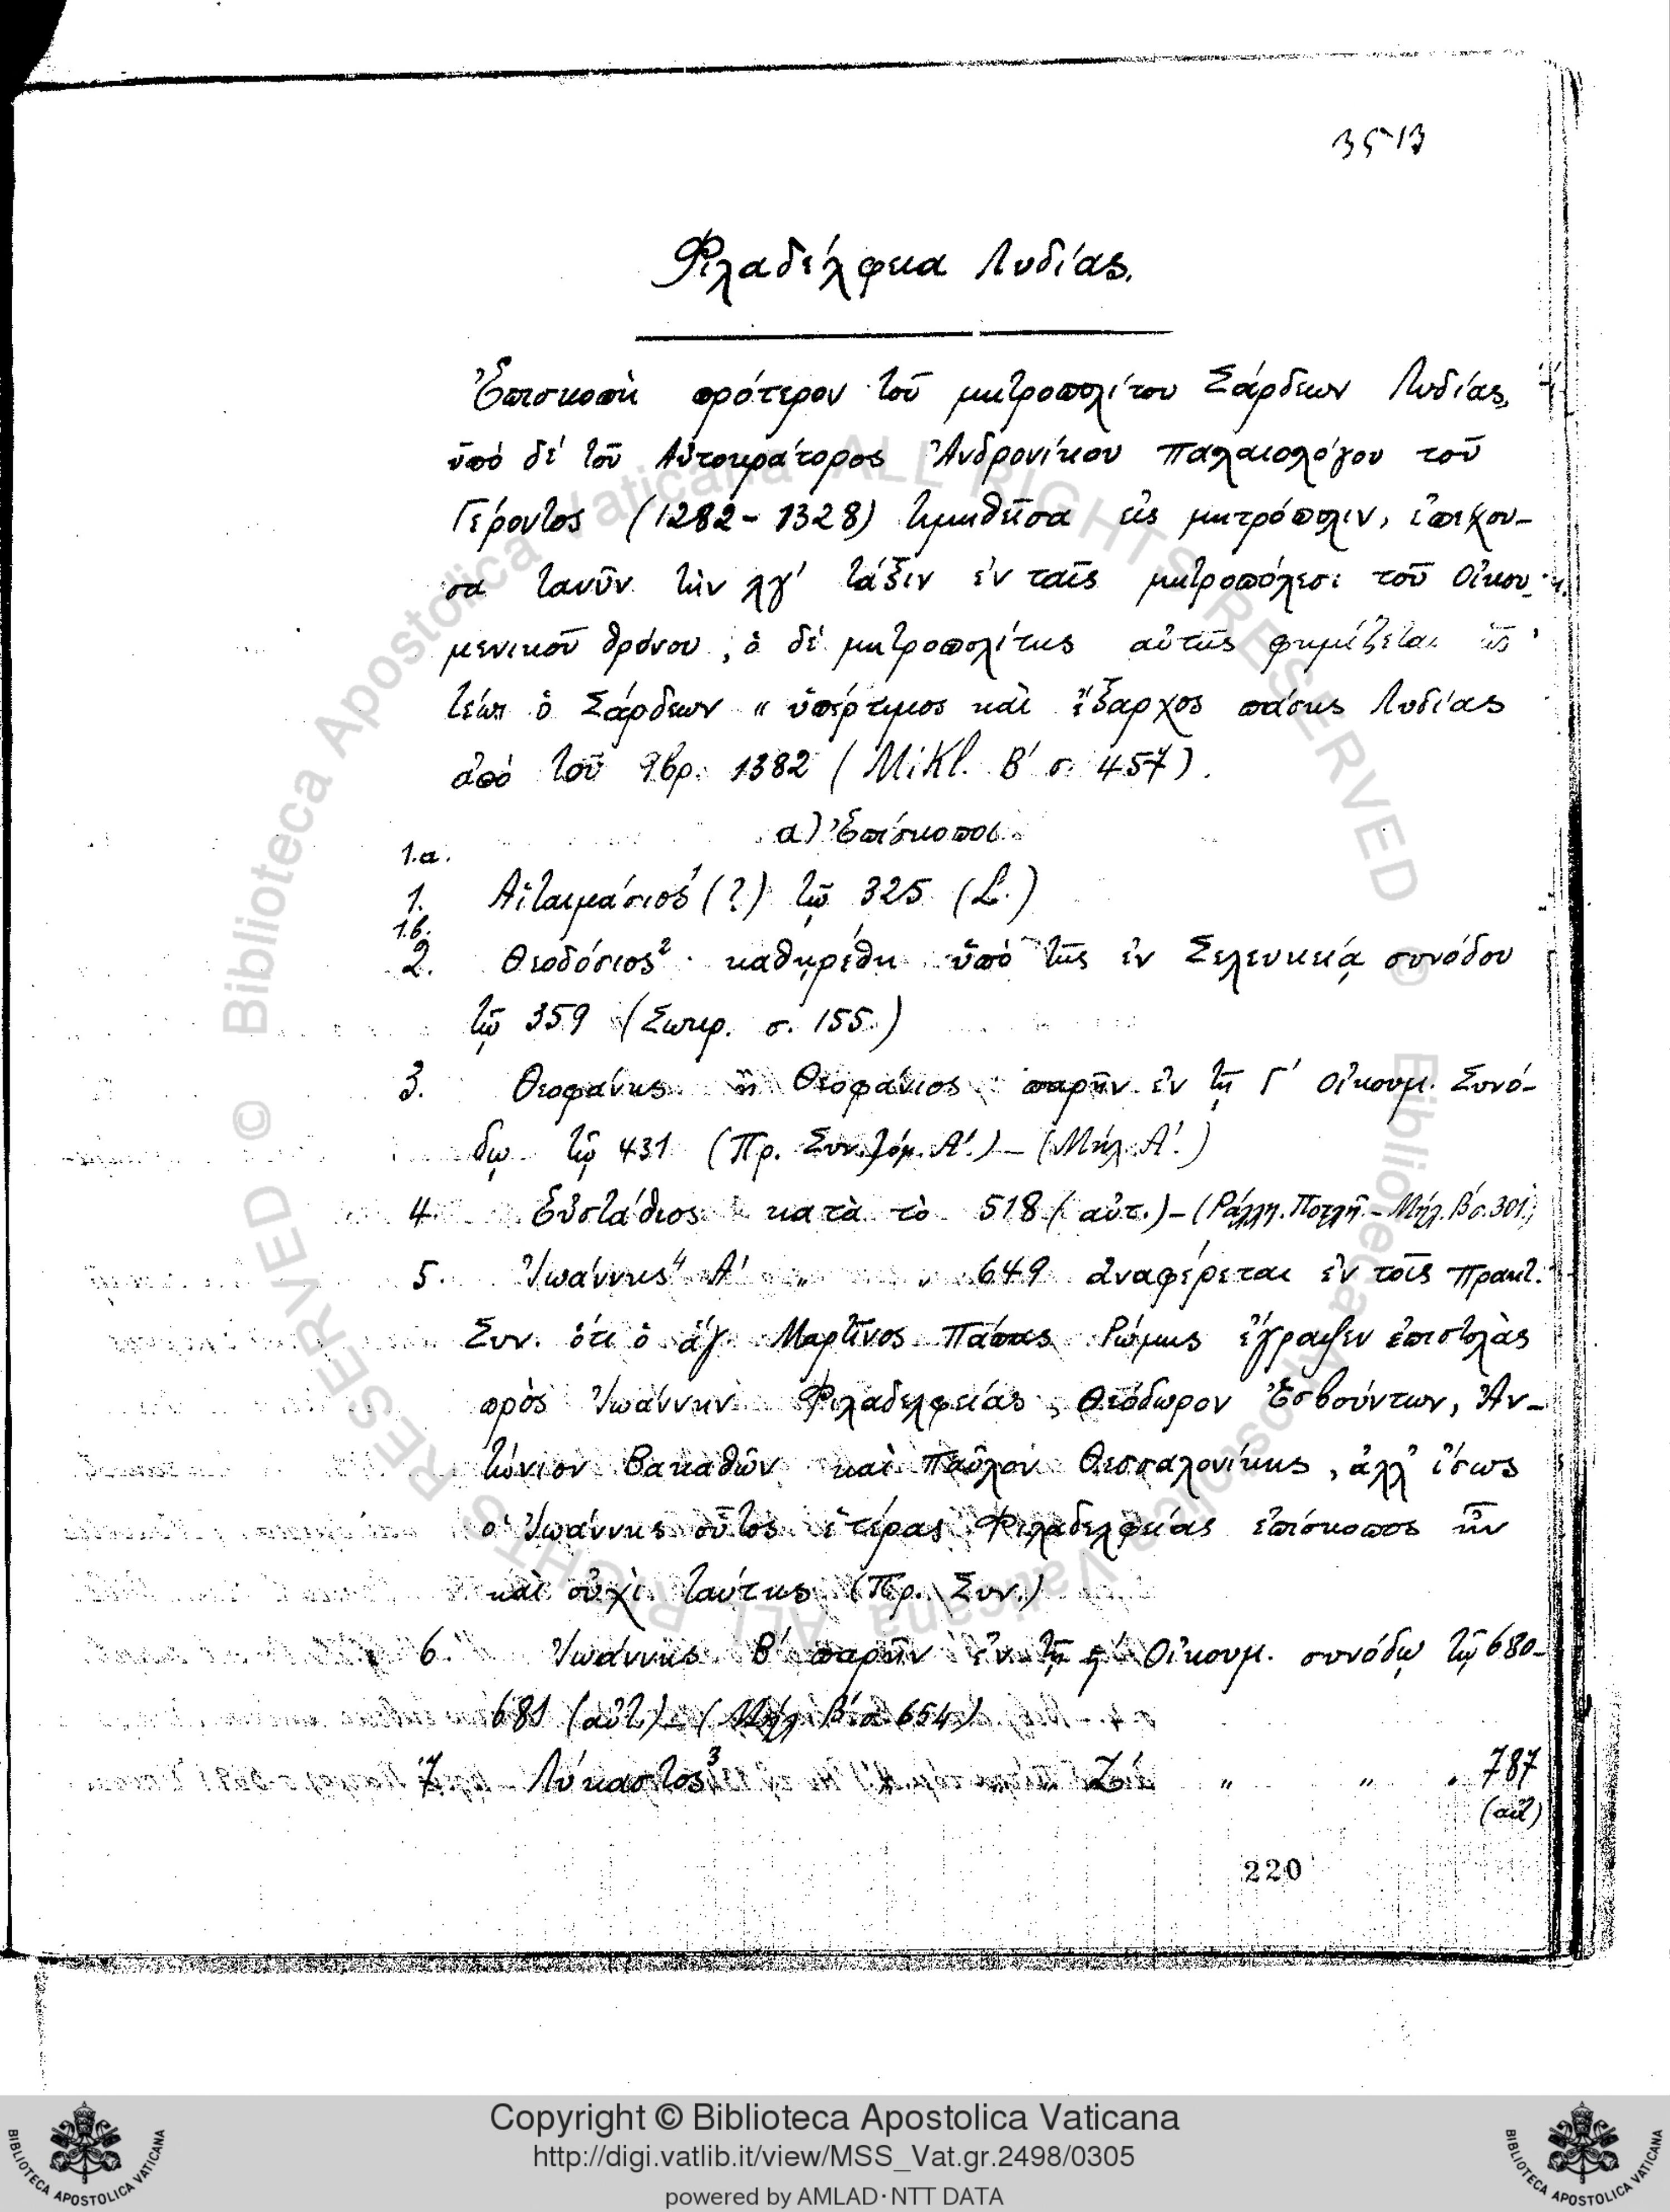 3513
Φιλαδέλφεια Λυδίας.
Ἐπισκοπὴ πρότερον τοῦ μητροπολίτου Σάρδεων Λυδίας,
ὑπὸ δὲ τοῦ Αὐτοκράτορος Ἀνδρονίκου Παλαιολόγου τοῦ
Γέροντος (1282-1328) τιμηθεῖσα εἰς μητρόπολιν, ἐπέχου-
σα τανῦν τὴν λγ' τάξιν ἐν ταῖς μητροπόλεσι τοῦ Οἰκου-
μενικοῦ θρόνου, ὁ δὲ μητροπολίτης αὐτῆς φημίζεται ὡς
τέως ὁ Σάρδεων „ ὑπέρτιμος καὶ ἔξαρχος πάσης Λυδίας
ἀπὸ τοῦ 9βρ. 1382 (Mikl. Β' σ. 457).
α) Ἐπίσκοποι
1.α.
1. Αἰταιμάσιος¹ (?) τῷ 325 (L.)
1.β.
2. Θεοδόσιος² καθῃρέθη ὑπὸ τῆς ἐν Σελευκείᾳ συνόδου
τῷ 359 (Σωκρ. σ. 155.)
3. Θεοφάνης ἢ Θεοφάνιος παρῆν ἐν τῇ Γ' Οἰκουμ. Συνό-
δῳ τῷ 431 (Πρ. Συν. τόμ. Α'.) - (Μήλ. Α'.)
4. Εὐστάθιος κατὰ τὸ 518 (αὐτ.) - (Ράλλη. Ποτλῆ - Μήλ. Β' σ. 301)
5. Ἰωάννης⁴ Α' „ „ 649 ἀναφέρεται ἐν τοῖς Πρακτ.
Συν. ὅτι ὁ ἅγ. Μαρτῖνος Πάπας Ρώμης ἔγραψεν ἐπιστολὰς
πρὸς Ἰωάννην Φιλαδελφείας, Θεόδωρον Ἐσβούντων, Ἀν-
τώνιον Βακαθῶν καὶ Παῦλον Θεσσαλονίκης, ἀλλ' ἴσως
ὁ Ἰωάννης οὗτος ἑτέρας Φιλαδελφείας ἐπίσκοπος ἦν
καὶ οὐχὶ ταύτης (Πρ. Συν.)
6. Ἰωάννης Β' παρῆν ἐν τῇ ϛ' Οἰκουμ. συνόδῳ τῷ 680-
681 (αὐτ.) - (Μήλ. Β' σ. 654)
7 Λύκαστος³ „ „ Ζ' „ „ . 787
(αὐτ)
220
© Biblioteca Apostolica Vaticana ALL RIGHTS RESERVED © Biblioteca Apostolica Vaticana ALL RIGHTS RESERVED
BIBLIOTECA APOSTOLICA VATICANA
Copyright © Biblioteca Apostolica Vaticana
http://digi.vatlib.it/view/MSS_Vat.gr.2498/0305
powered by AMLAD·NTT DATA
BIBLIOTECA APOSTOLICA VATICANA